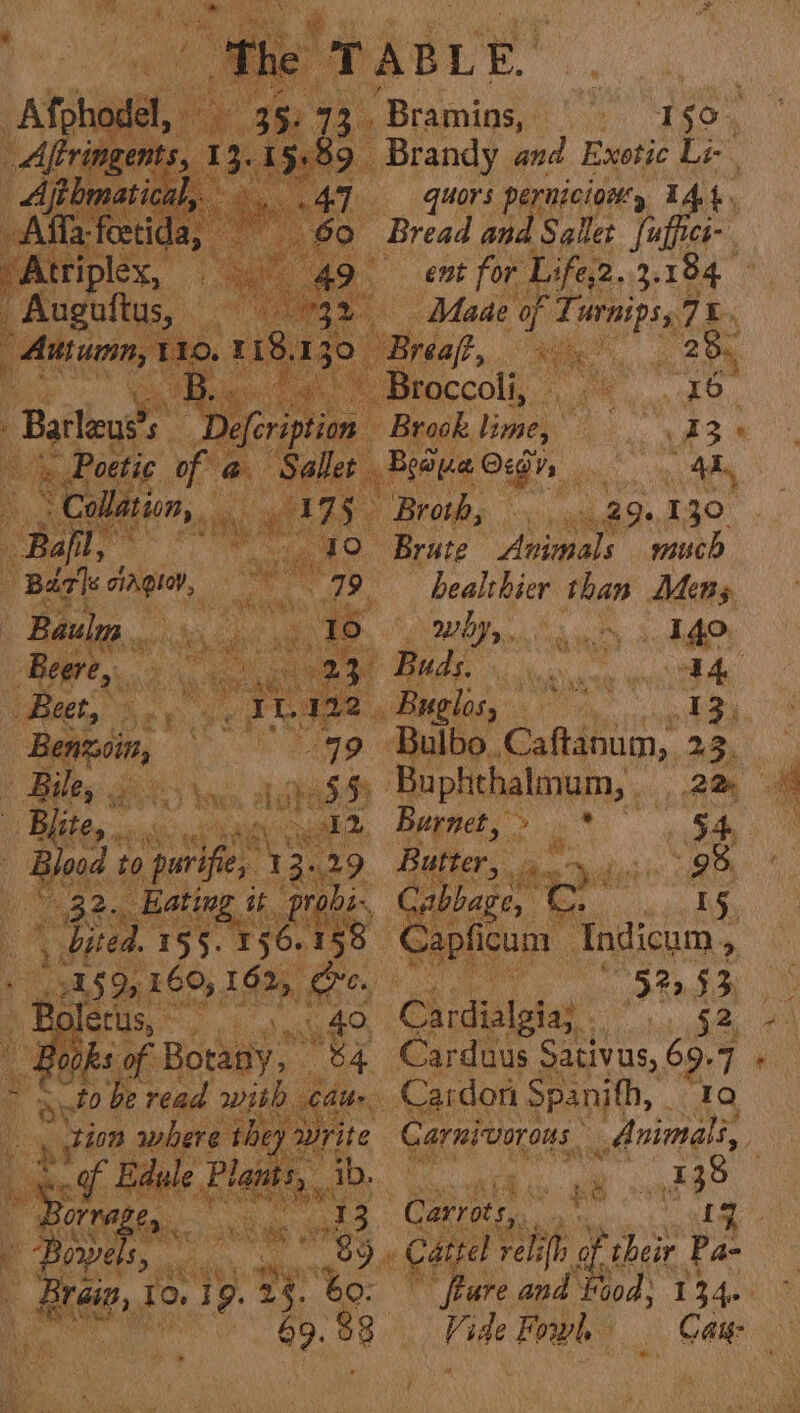 The TABLE.
Aſphodel, 35. 73.
Aſtringents, 13. 15. 89
Aſthmatical, 47
Aſſa-fœtida, 60
Atriplex, 49
Auguſtus, 32
Autumn, 110. 118. 130
B.
Barlæus's Deſcription
Poetic of a Sallet
Collation, 175
Baſil, 10
79
Baulm 10
Beere, 23
Beet, 11. 122
Benzoin, 79
Bile, 55
Blite, 12
Blood to purifie, 13. 29
32. Eating it prohi-
bited. 155. 156. 158
159, 160, 162, &c.
Boletus, 40
Books of Botany, 84
to be read with cau-
tion where they write
of Edule Plants, ib.
Borrage, 13
Bowels, 89
Brain, 10. 19. 25. 60.
69. 88
Bramins, 150.
Brandy and Exotic Li-
quors pernicious,
Bread and Sallet ſuffici-
ent for Life, 2. 3. 184
Made of Turnips, 71.
Breaſt, 28.
Broccoli, 16
Brook lime, 13
Βρώμα Θεῶν, 41.
Broth, 29. 130
Brute Animals much
healthier than Men;
why, 140
Buds. 14
Buglos, 13.
Bulbo Caſtanum, 23.
Buphthalmum, 22.
Burnet, 54.
Butter, 98.
Cabbage, C. 15
Capſicum Indicum,
52, 53.
Cardialgia; 52
Carduus Sativus, 69. 7
Cardon Spaniſh, 10
Carnivorous Animals,
138
Carrots, 17
Cattel reliſh of their Pa-
ſture and Food, 134.
Vide Fowl.
Cau-